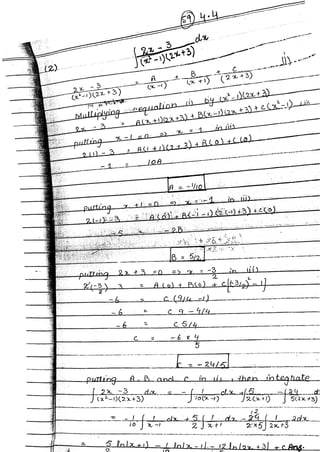 59 4.4
(2) ∫ 2x - 3 / (x²-1)(2x+3) dx
2x - 3 / (x²-1)(2x+3) = A / (x-1) + B / (x+1) + C / (2x+3) i)
Multiplying equation i) by (x²-1)(2x+3)
2x - 3 = A(x+1)(2x+3) + B(x-1)(2x+3) + C(x²-1) ii)
putting x-1 = 0 => x = 1 in ii)
2(1) - 3 = A(1+1)(2+3) + B(0) + C(0)
-1 = 10A
A = -1/10
putting x+1 = 0 => x = -1 in ii)
2(-1)-3 = A(0) + B(-1-1)(2(-1)+3) + C(0)
-5 = -2B
B = 5/2
putting 2x + 3 = 0 => x = -3/2 in ii)
2(-3/2) - 3 = A(0) + B(0) + C[(-3/2)² - 1]
-6 = C (9/4 - 1)
-6 = C 9 - 4/4
-6 = C 5/4
C = -6 x 4 / 5
C = -24/5
putting A, B and C in i), then integrate
∫ 2x - 3 / (x²-1)(2x+3) dx = -∫ 1 / 10(x-1) dx + ∫ 5 / 2(x+1) ∫ 24 / 5(2x+3) d
= -1/10 ∫ 1 / x-1 dx + 5/2 ∫ 1 / x+1 dx - 24 12 / 2x5 ∫ 1 / 2x+3 2dx
= 5/2 ln|x+1| - 1/10 ln|x-1| - 12/5 ln|2x+3| + c Ans.